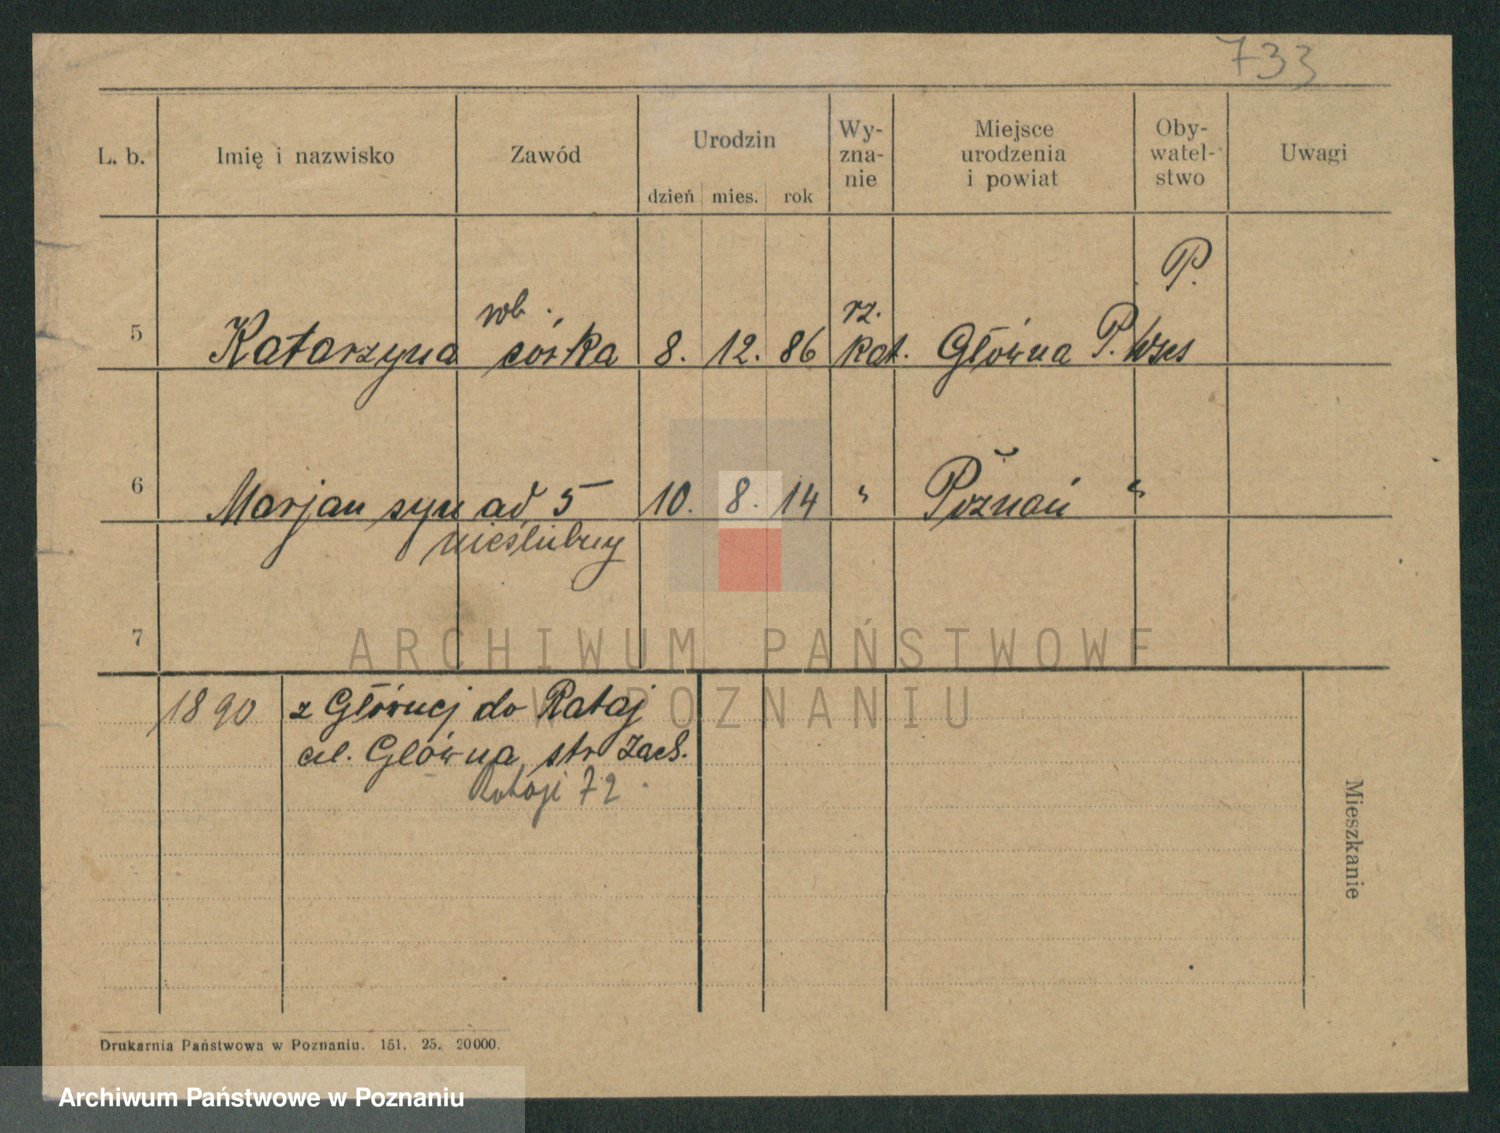 733
L. b. Imię i nazwisko Zawód Urodzin dzień mies. rok Wy-zna-nie Miejsce urodzenia i powiat Oby-watel-stwo Uwagi
P.
rob. rz.
5 Katarzyna córka 8. 12. 86 kat. Główna P. Wsch
6 Marjan syn ad 5 10. 8. 14 " Poznań "
nieślubny
7
1890 z Głównej do Rataj
ul. Główna str Zach.
Rataje 72
Mieszkanie
Drukarnia Państwowa w Poznaniu. 151. 25. 20000.
ARCHIWUM PAŃSTWOWE
W POZNANIU
Archiwum Państwowe w Poznaniu